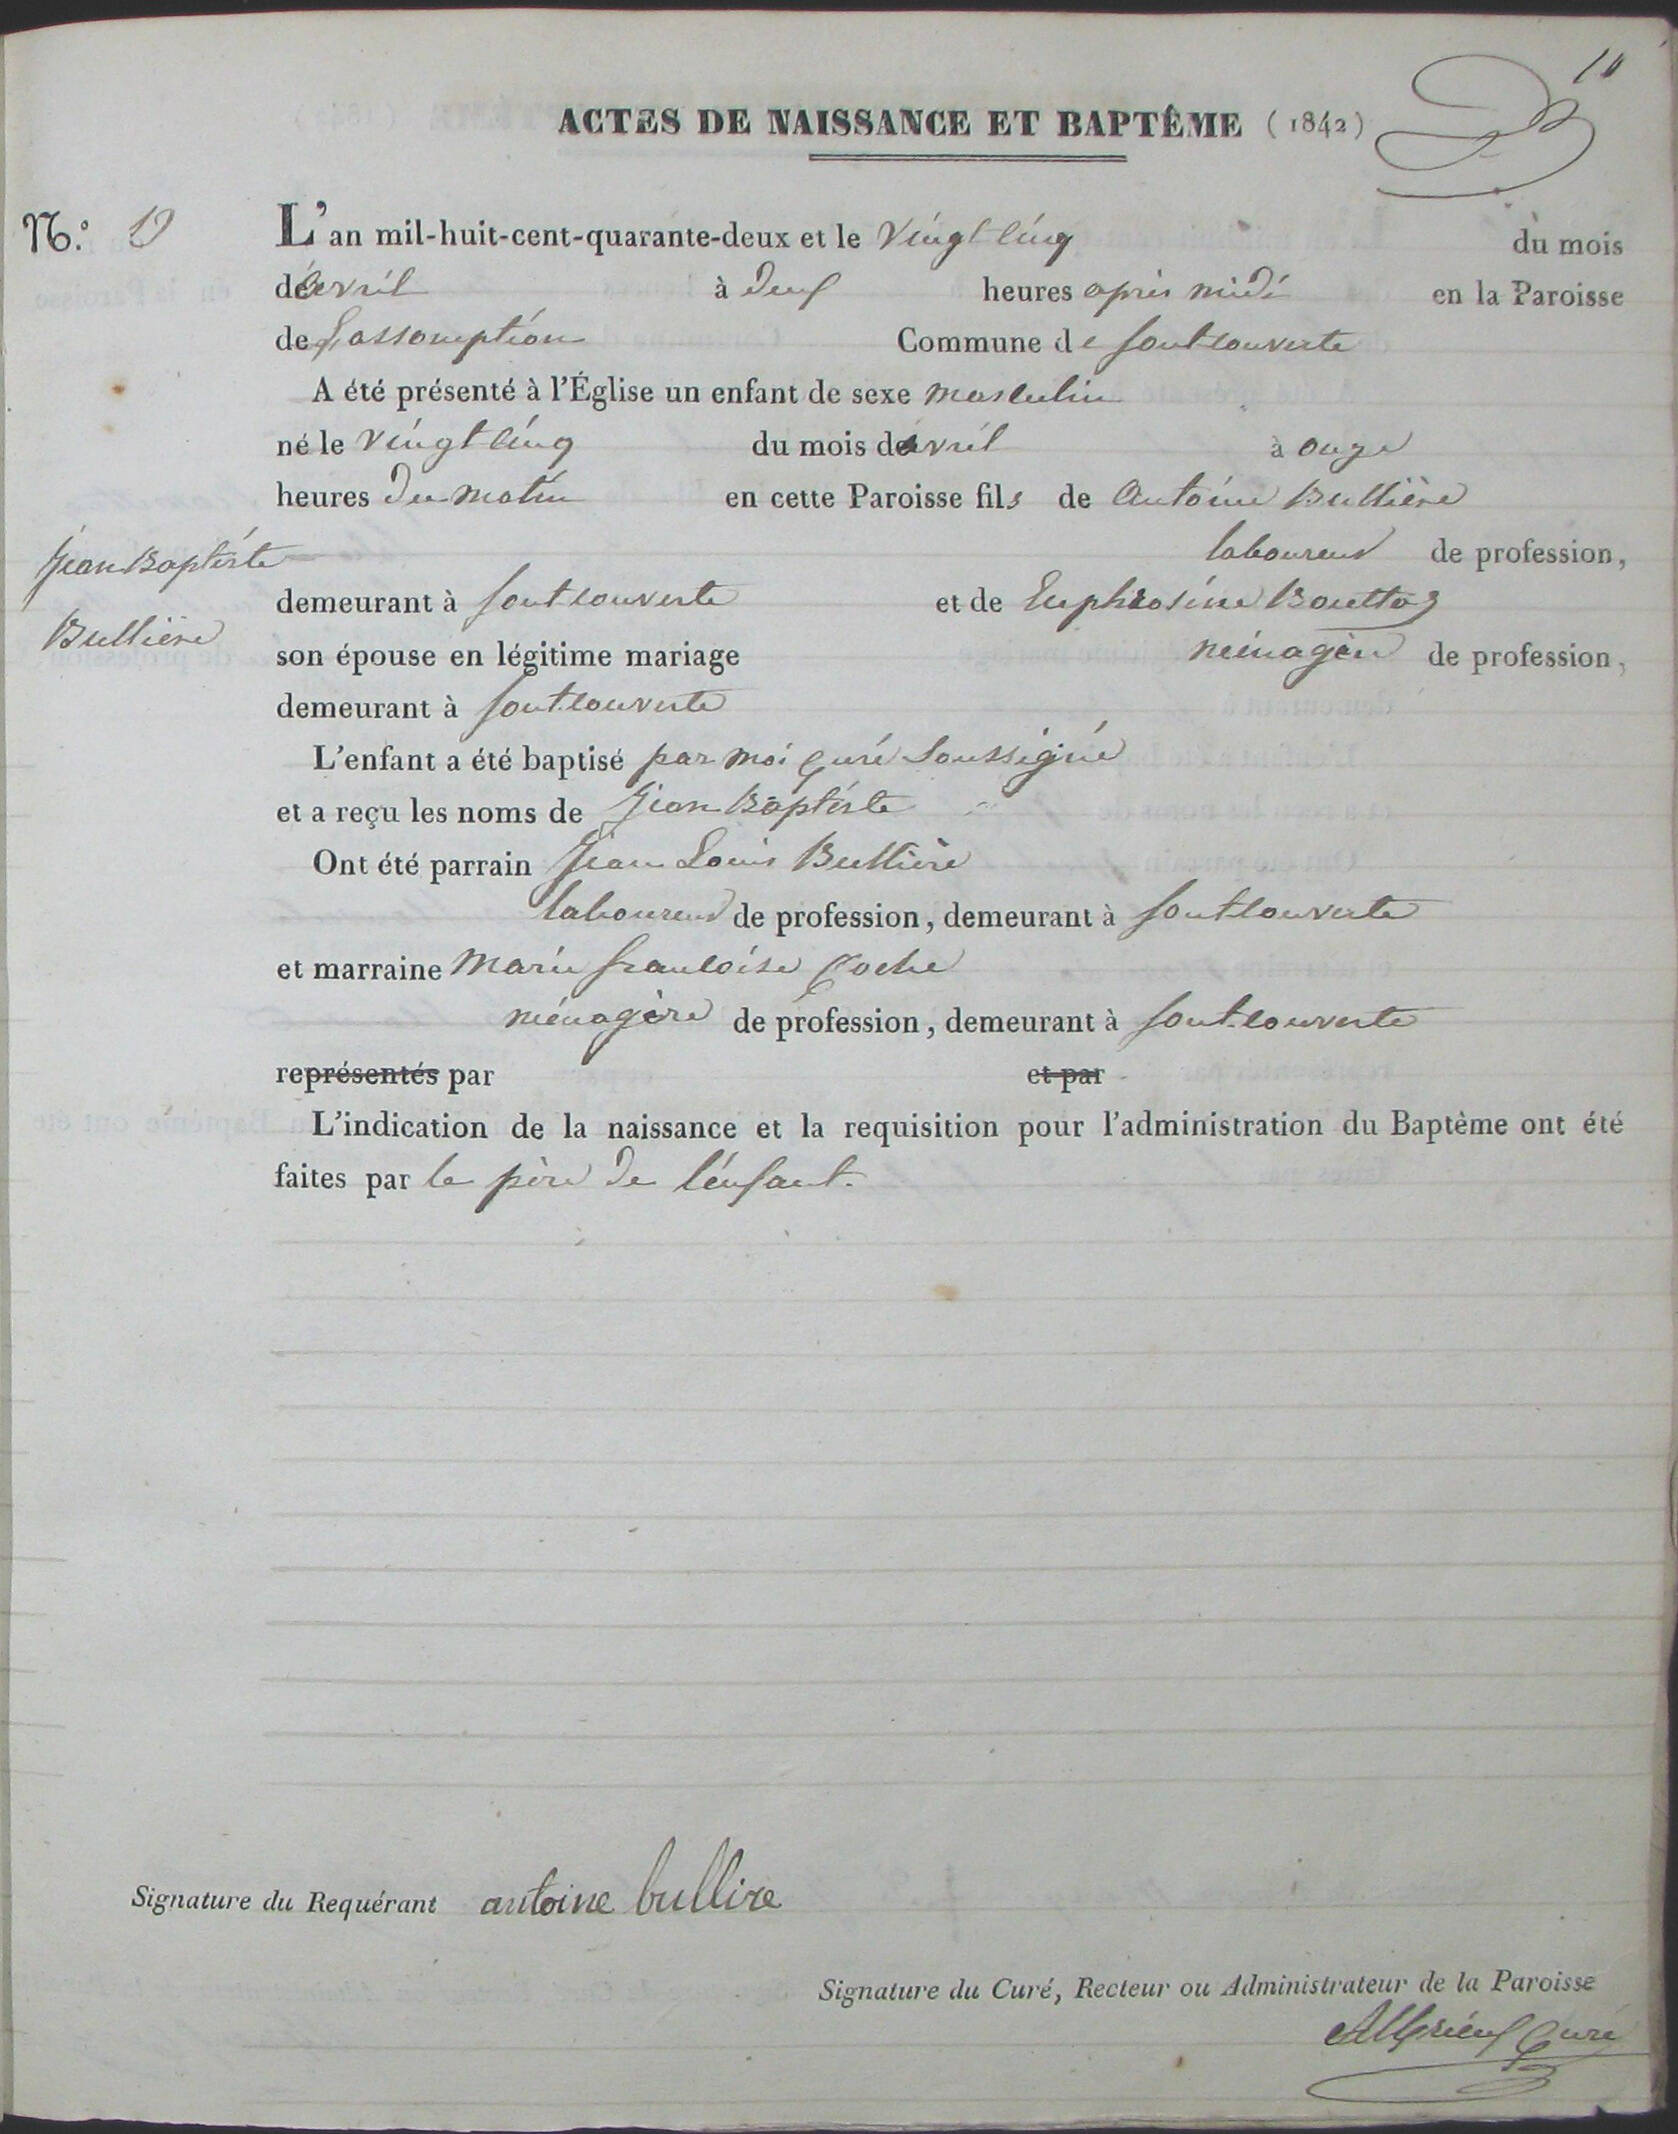 10
ACTES DE NAISSANCE ET BAPTÊME (1842)
N.º 19 L'an mil-huit-cent-quarante-deux et le vingt cinq du mois
de avril à deux heures après midi en la Paroisse
de L'assomption Commune de fontcouverte
A été présenté à l'Église un enfant de sexe masculin
né le vingt cinq du mois de avril à onze
heures du matin en cette Paroisse fils de Antoine Bullière
laboureur de profession,
Jean Baptiste
demeurant à fontcouverte et de Euphrosine Bouttaz
Bullière
son épouse en légitime mariage ménagère de profession,
demeurant à fontcouverte
L'enfant a été baptisé par moi curé soussigné
et a reçu les noms de Jean Baptiste
Ont été parrain Jean Louis Bullière
laboureur de profession, demeurant à fontcouverte
et marraine Marie françoise Coche
ménagère de profession, demeurant à fontcouverte
représentés par et par
L'indication de la naissance et la requisition pour l'administration du Baptème ont été
faites par le père de l'enfant.
Signature du Requérant antoine bullire
Signature du Curé, Recteur ou Administrateur de la Paroisse
curé